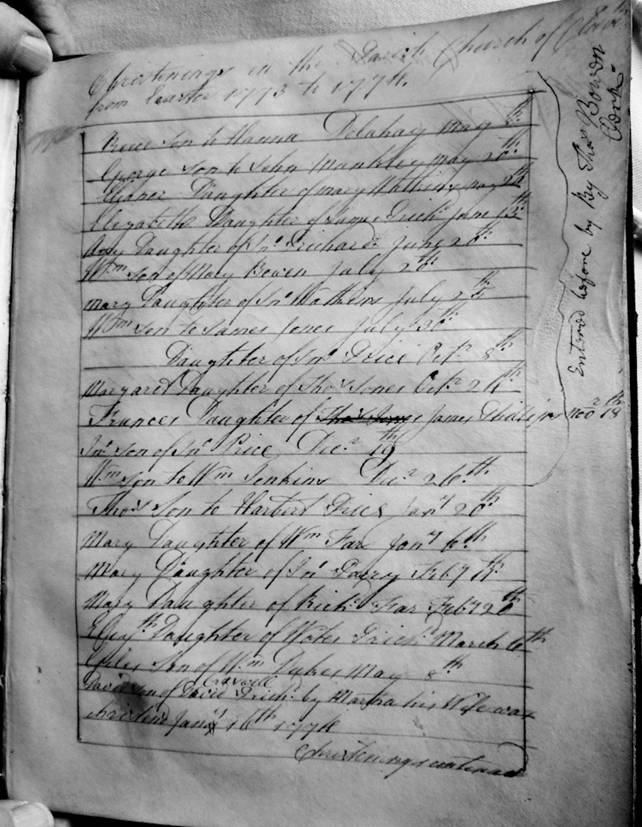 Christenings in the Parish Church of
from Easter 1773 to 1774.
Price Son to Hanna Delahay May
George Son to John May 20th
Eleanor Daughter of Mary Watkins May
Elizabeth Daughter of James Prich.d June 13th
Amy Daughter of Jn.o Prichard June 20th
Wm Son of Mary Bowen July 20th
Mary Daughter of Jn.o Watkins July 25
Wm Son to James Jones July 30th
Daughter of Jn.o Price Oct.r 8th
Margaret Daughter of Tho.s Jones Oct.r 24th
Frances Daughter of James Nov.r 18th
Jn.o Son of Jn.o Price, Dec.r 19th
Wm Son to Wm Jenkins Dec.r 26th
Tho.s Son to Harbert Price Jan.y 20th
Mary Daughter of Wm Far Jan.y 6th
Mary Daughter of Jn.o Parry Feb.y
Mary Daughter of Rich.d Far Feb.y 20th
Eliza.th Daughter of Walter Prich.d March 6th
Giles Son of Wm Dukes May 8th
David Son of David Prich.d by Martha his Wife was
christind Jan.y 16th 1774
Christenings continued
Entered before by By Tho.s Bowen
Clerk